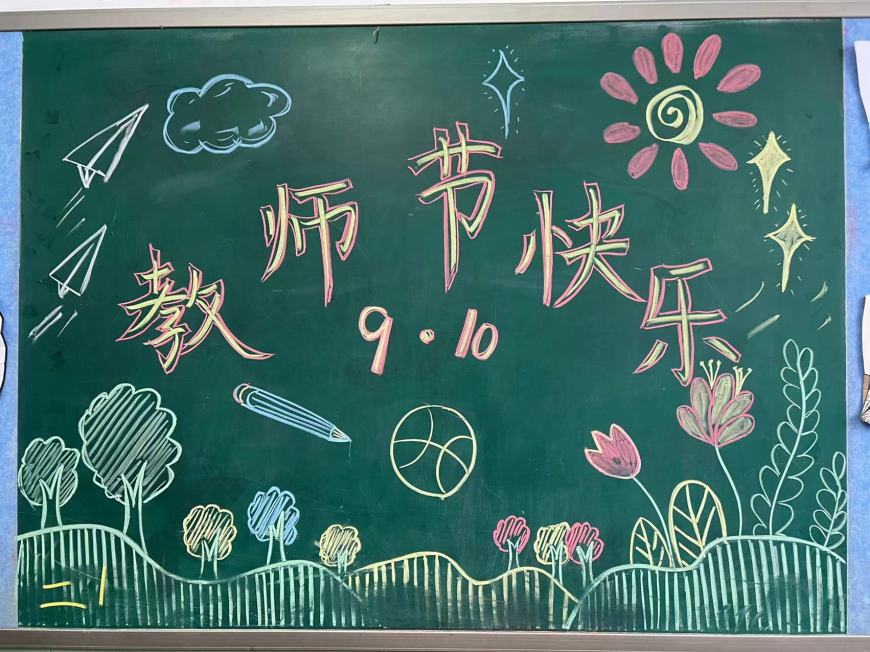 教师节快乐
9·10
二1